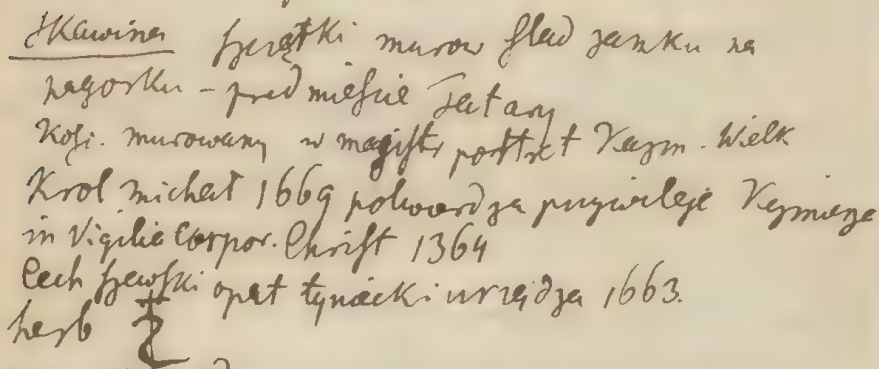 Skawina szczątki murow ślad zamku na
pagorku - przedmieście Tatary
Kość. murowany w magistr portret Kazm. Wielk
Krol Michał 1669 potwierdza przywileje Kazmierza
in Vigilia Corpor. Christ 1364
Cech szewski opat tyniecki urządza 1663.
herb